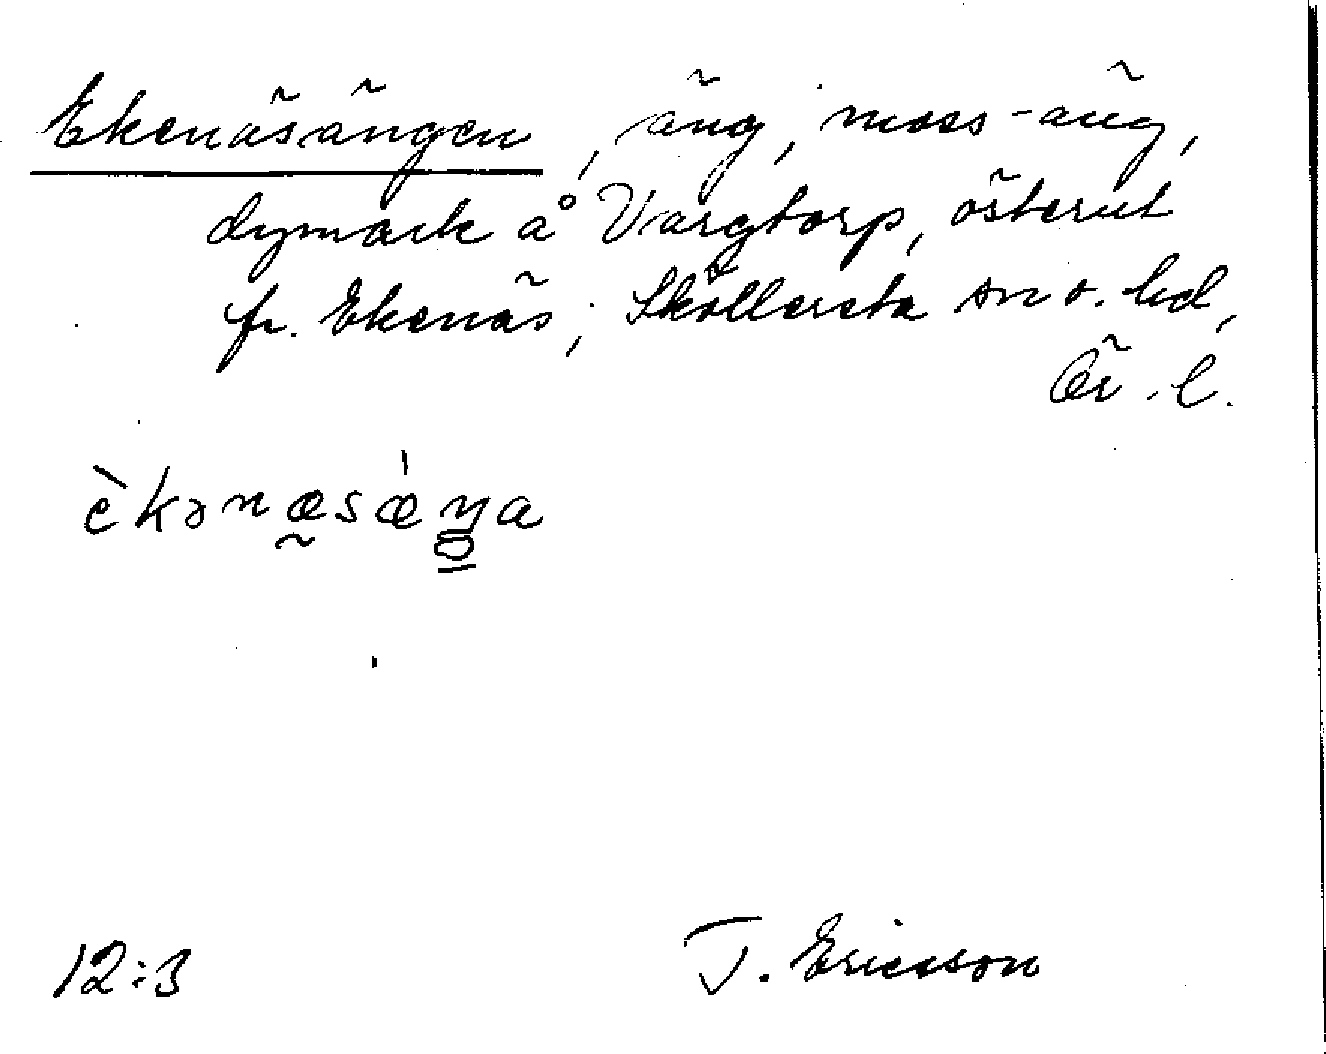 Ekenäsängen, äng, moss-äng,
dymark å Vargtorp, österut
fr. Ekenäs; Sköllersta sn o. hd,
Ör. l.
èkənæsæ̀ŋa
12:3
T. Ericsson